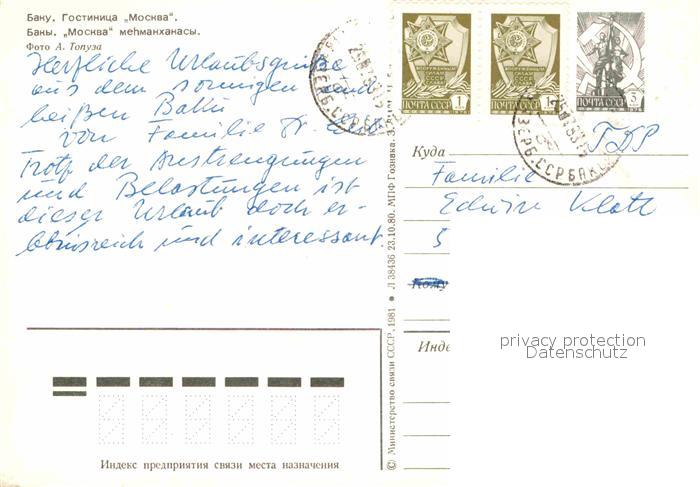 Баку. Гостиница „Москва".
Бакы. „Москва" меһманханасы.
Фото А. Топуза
Herzliche Urlaubsgrüße
aus dem sonnigen und
heißen Baku
von Familie Dr.
Trotz der Anstrengungen
und Belastungen ist
dieser Urlaub doch er-
lebnisreich und interessant.
ПОЧТА СССР 1
ПОЧТА СССР 1
ПОЧТА СССР 3
Куда ГДР
Familie
Klatt
5
Кому
Инде
privacy protection
Datenschutz
Индекс предприятия связи места назначения
© Министерство связи СССР, 1981 ● Л 38436 23.10.80. МПФ Гознака. З.